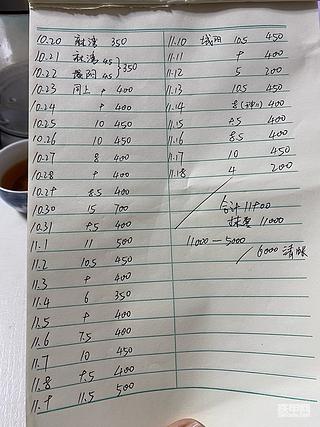 10.20 社湾 350
10.21 社湾 4.5
10.22 城阳 4.5 } 350
10.23 同上 9 400
10.24 9 400
10.25 10 450
10.26 10 450
10.27 8 400
10.28 9 400
10.29 8.5 400
10.30 15 700
10.31 9.5 400
11.1 11 500
11.2 10.5 450
11.3 9 400
11.4 6 350
11.5 9 400
11.6 7.5 400
11.7 10 450
11.8 9.5 400
11.9 11.5 500
11.10 城阳 10.5 450
11.11 9 400
11.12 5 200
11.13 10.5 450
11.14 8 400
11.15 9.5 400
11.16 8.5 400
11.17 10 450
11.18 4 200
合计 11900
抹零 11000
11000-5000
6000 清账